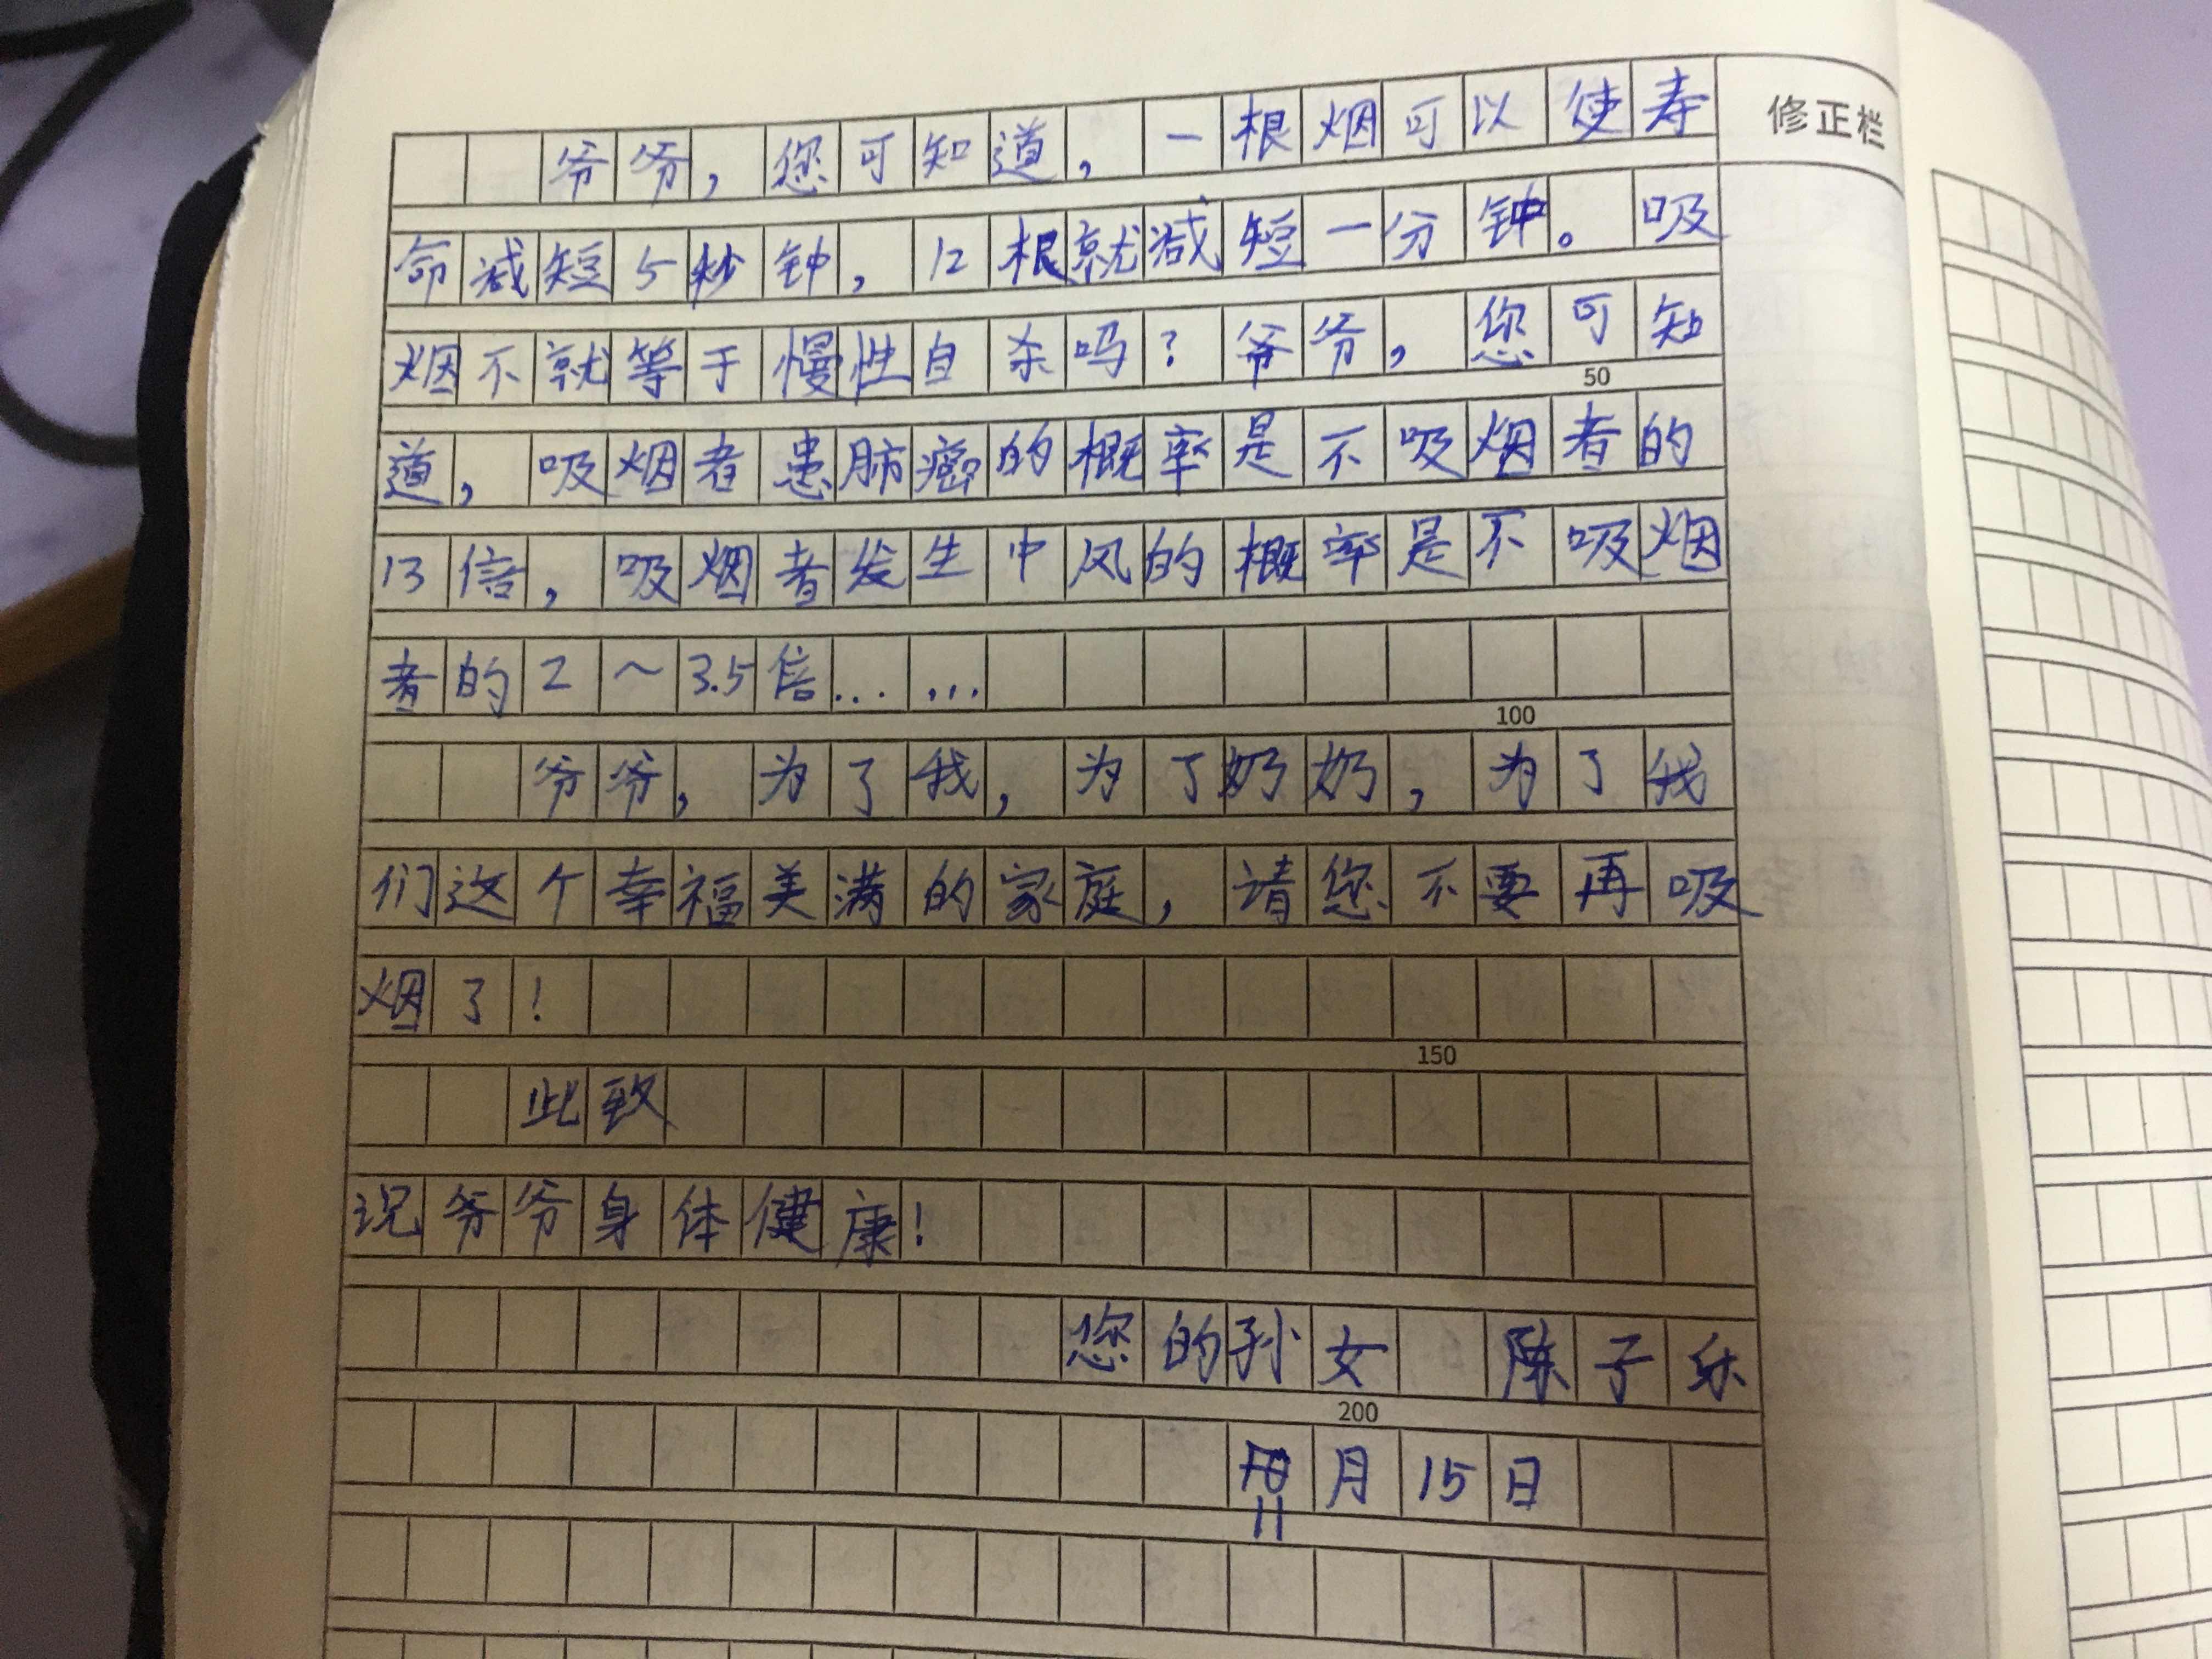 修正栏
爷爷，您可知道，一根烟可以使寿
命减短5秒钟，12根就减短一分钟。吸
烟不就等于慢性自杀吗？爷爷，您可知
50
道，吸烟者患肺癌的概率是不吸烟者的
13倍，吸烟者发生中风的概率是不吸烟
者的2～3.5倍……
100
爷爷，为了我，为了奶奶，为了我
们这个幸福美满的家庭，请您不要再吸
烟了！
150
此致
祝爷爷身体健康！
您的孙女 陈子乐
200
月15日
11